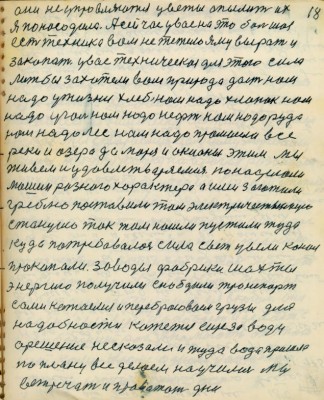 18
они не управляются цветы опылить их
я понасодила. А сейчас у вас на это большая
есть техника вам не тежило яму вырыт и
закапат у вас техническая для этого сила
лиш бы захотели вам природа даст нам
надо у жизни хлеб нам надо хлопок нам
надо угол нам надо нефт нам надо руда
нам надо лес нам надо промысел все
реки и озера да моря и окианы этим мы
живем и удовлетваряимся понаделали
машин разного характера а или заготовили
греблю поставили там электрическую
станцию ток там нашли пустили туда
куда потребовался сила свет цвели канал
прокопали. Заводы фабрики шахты
энергию получили снабдили транспорт
сами катаемся и перебрасоваим грузы для
надобности кажется сиреза воду
орешение несказали и туда вода пришла
по плану все делаем научились мы
встречат и провожат дни